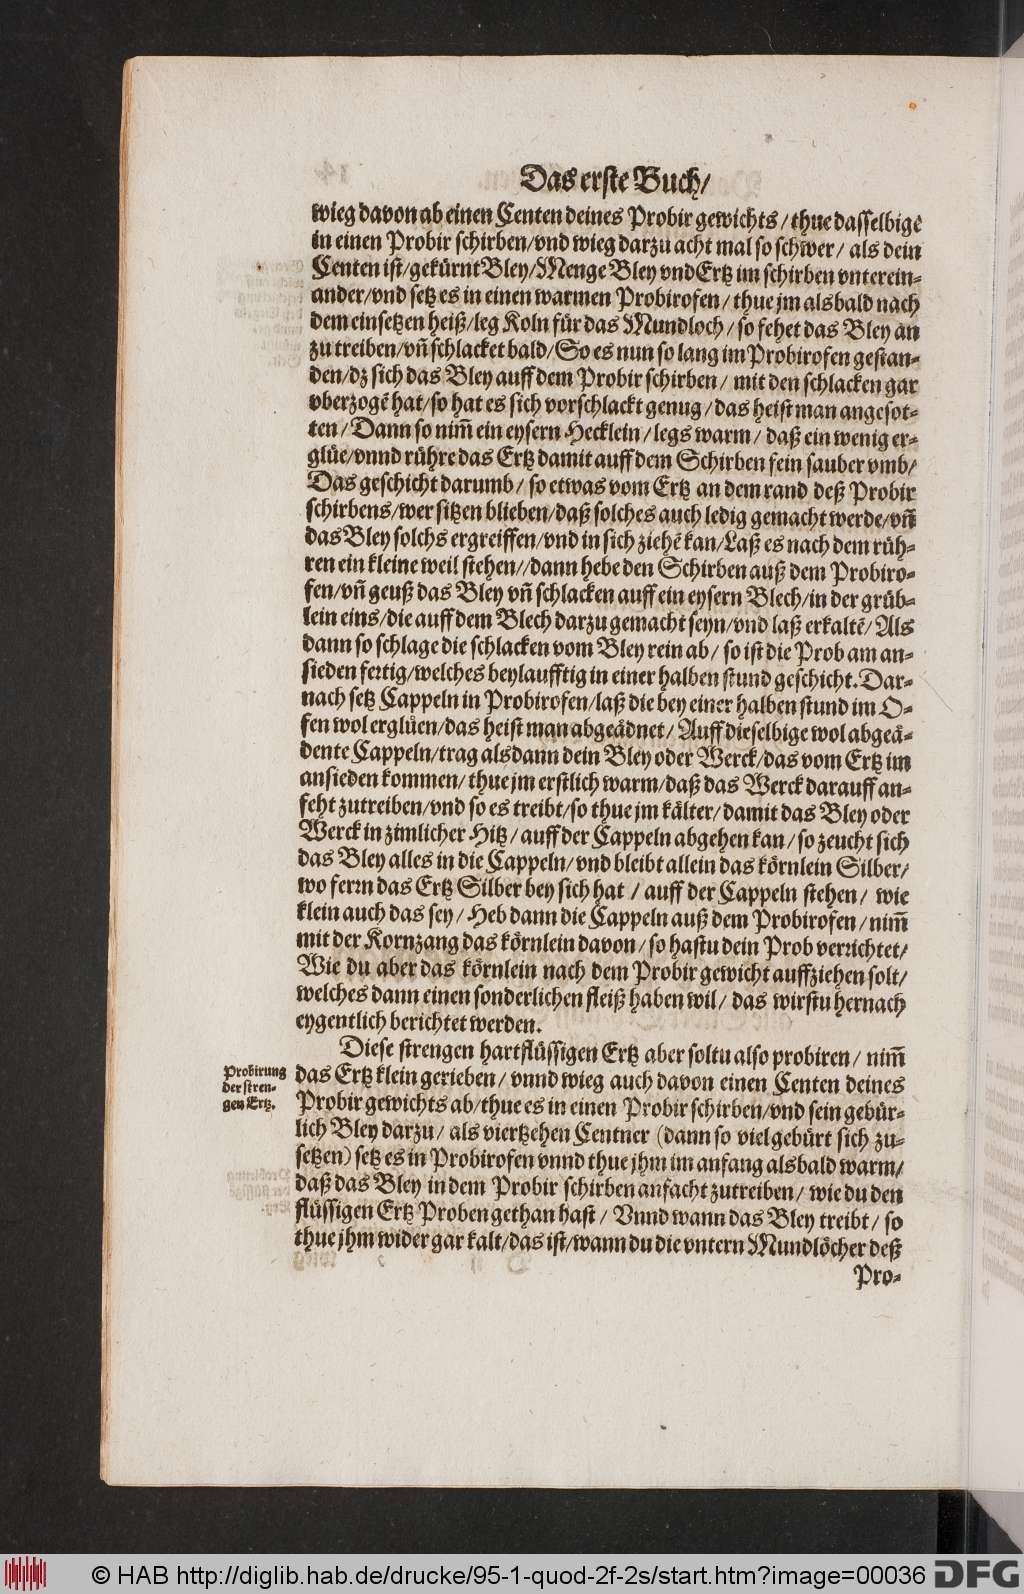 Das erste Buch/
wieg davon ab einen Centen deines Probir gewichts / thue dasselbigē
in einen Probir schirben/vnd wieg darzu acht mal so schwer/ als dein
Centen ist/gekürnt Bley/Menge Bley vnd Ertz im schirben vnterein-
ander/vnd setz es in einen warmen Probirofen / thue jm alsbald nach
dem einsetzen heiß/leg Koln für das Mundloch / so fehet das Bley an
zu treiben/vn̄ schlacket bald/So es nun so lang im Probirofen gestan-
den/dz sich das Bley auff dem Probir schirben / mit den schlacken gar
vberzogē hat/so hat es sich vorschlackt genug / das heist man angesot-
ten / Dann so nim̄ ein eysern Hecklein / legs warm / daß ein wenig er-
glüe/vnnd rühre das Ertz damit auff dem Schirben fein sauber vmb/
Das geschicht darumb / so etwas vom Ertz an dem rand deß Probir
schirbens/wer sitzen blieben/daß solches auch ledig gemacht werde/vn̄
das Bley solchs ergreiffen/vnd in sich ziehē kan/Laß es nach dem rüh-
ren ein kleine weil stehen//dann hebe den Schirben auß dem Probiro-
fen/vn̄ geuß das Bley vn̄ schlacken auff ein eysern Blech/in der grüb-
lein eins/die auff dem Blech darzu gemacht seyn/vnd laß erkaltē/Als
dann so schlage die schlacken vom Bley rein ab/ so ist die Prob am an-
sieden fertig/welches beylaufftig in einer halben stund geschicht. Dar-
nach setz Cappeln in Probirofen/laß die bey einer halben stund im O-
fen wol erglüen/das heist man abgeädnet/ Auff dieselbige wol abgeä-
dente Cappeln/trag alsdann dein Bley oder Werck/das vom Ertz im
ansieden kommen/ thue jm erstlich warm/daß das Werck darauff an-
feht zutreiben/vnd so es treibt/so thue jm kälter/damit das Bley oder
Werck in zimlicher Hitz/ auff der Cappeln abgehen kan/ so zeucht sich
das Bley alles in die Cappeln/ vnd bleibt allein das körnlein Silber/
wo ferrn das Ertz Silber bey sich hat / auff der Cappeln stehen/ wie
klein auch das sey/ Heb dann die Cappeln auß dem Probirofen/ nim̄
mit der Kornzang das körnlein davon/ so hastu dein Prob verrichtet/
Wie du aber das körnlein nach dem Probir gewicht auffziehen solt/
welches dann einen sonderlichen fleiß haben wil/ das wirstu hernach
eygentlich berichtet werden.
Diese strengen hartflüssigen Ertz aber soltu also probiren/ nim̄
Probirung
der stren-
gen Ertz.
das Ertz klein gerieben/ vnnd wieg auch davon einen Centen deines
Probir gewichts ab/thue es in einen Probir schirben/vnd sein gebür-
lich Bley darzu/ als viertzehen Centner (dann so viel gebürt sich zu-
setzen) setz es in Probirofen vnnd thue jhm im anfang alsbald warm/
daß das Bley in dem Probir schirben anfacht zutreiben/ wie du den
flüssigen Ertz Proben gethan hast/ Vnnd wann das Bley treibt/ so
thue jhm wider gar kalt/das ist/wann du die vntern Mundlöcher deß
Pro-
© HAB http://diglib.hab.de/drucke/95-1-quod-2f-2s/start.htm?image=00036
DFG